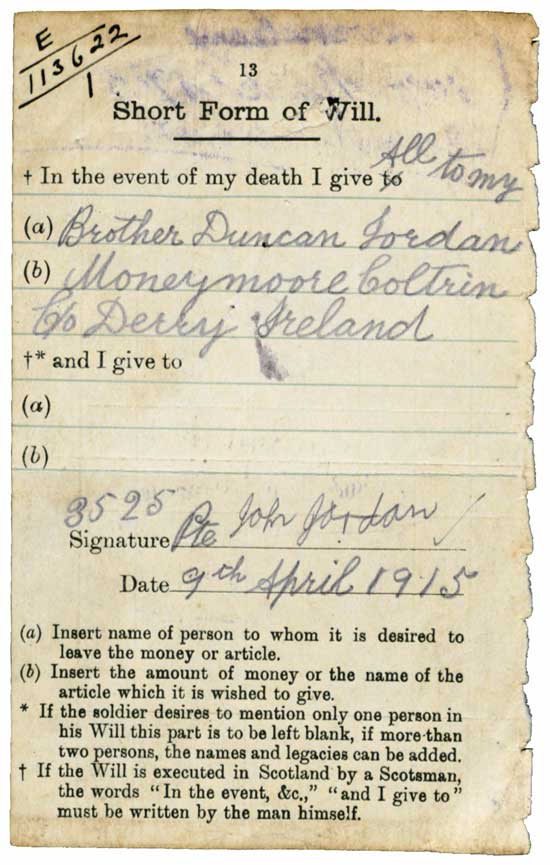 E
113622
1
13
Short Form of Will.
† In the event of my death I give to All to my
(a) Brother Duncan Jordan
(b) Moneymoore Coltrin
C/o Derry Ireland
†* and I give to
(a)
(b)
3525
Signature Pte John Jordan
Date 9th April 1915
(a) Insert name of person to whom it is desired to
leave the money or article.
(b) Insert the amount of money or the name of the
article which it is wished to give.
* If the soldier desires to mention only one person in
his Will this part is to be left blank, if more than
two persons, the names and legacies can be added.
† If the Will is executed in Scotland by a Scotsman,
the words "In the event, &c.," "and I give to"
must be written by the man himself.